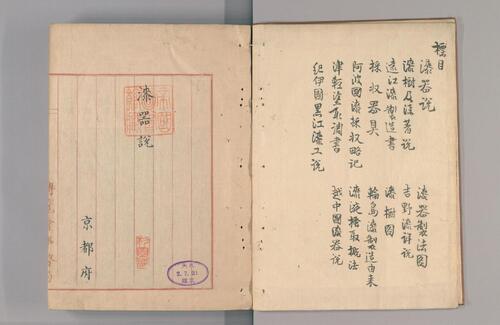 標目
漆器説
漆樹及注著説
遠江漆製造書
採収器具
阿波國漆採収略記
津軽塗取調書
紀伊国黒江漆工説
漆器製法圖
吉野漆詳説
漆樹图
輪島漆製造由来
漆液搔取概法
越中國漆器説
漆器説
京都府
2.7.31